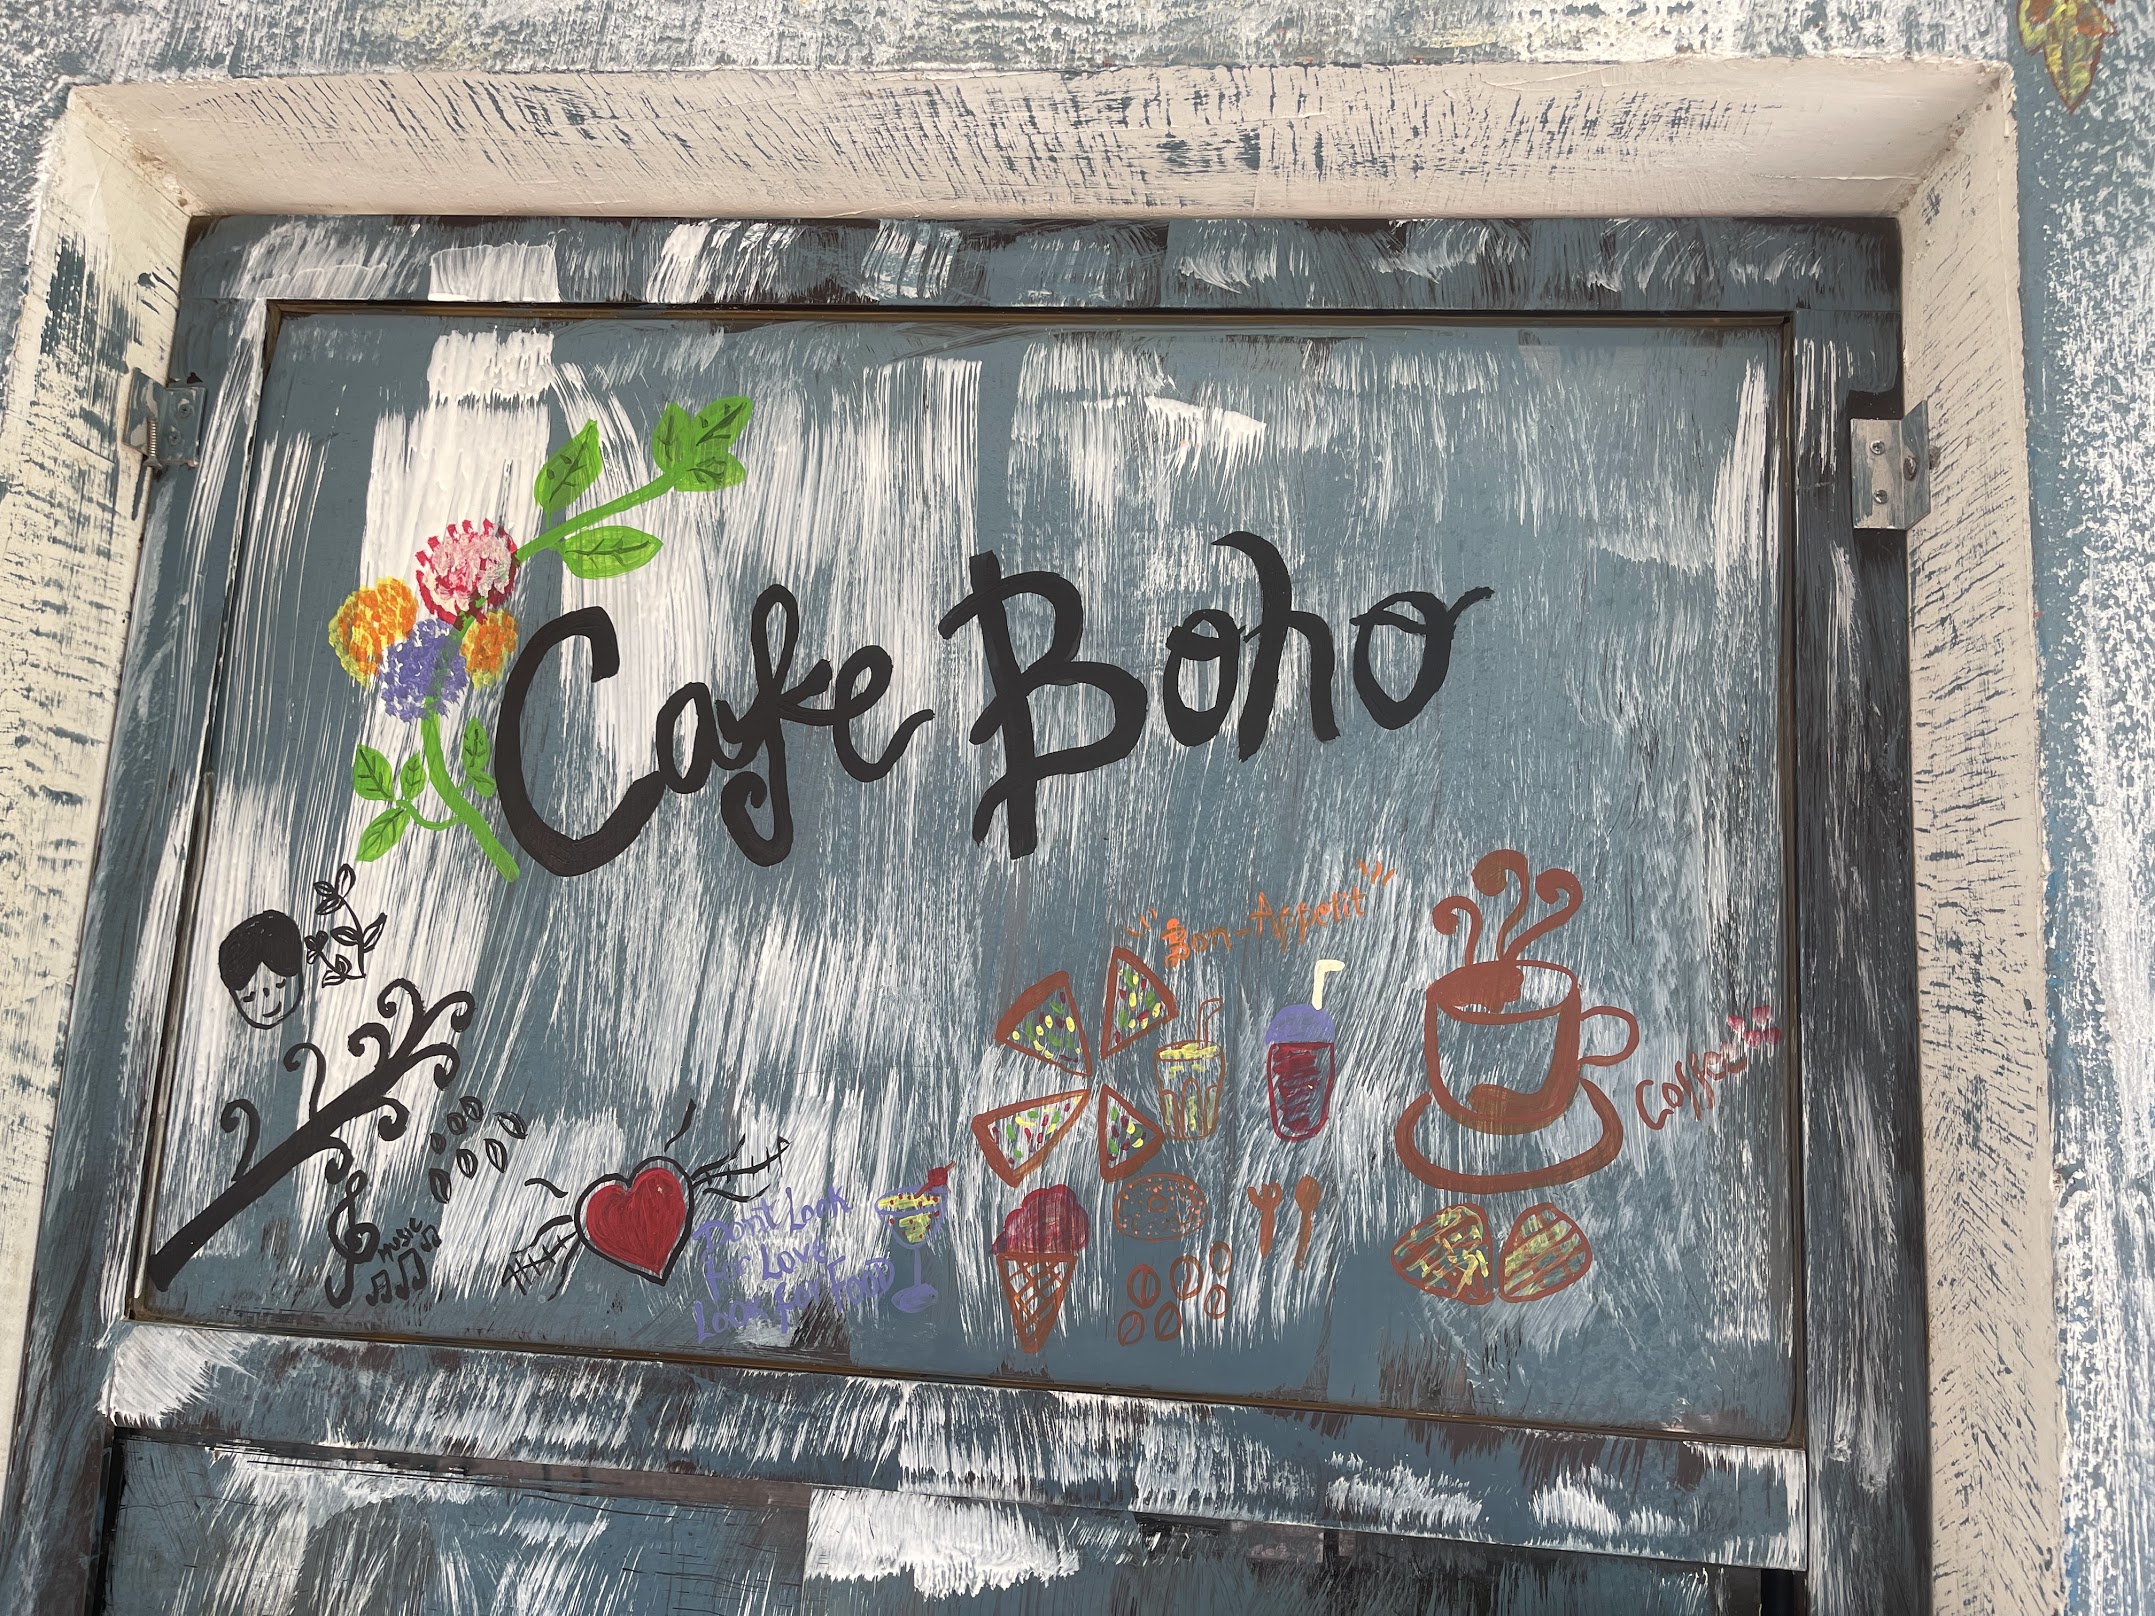 Cafe Boho
Bon-Appetit
Coffee
music
Don't Look
for Love
Look for FOOD